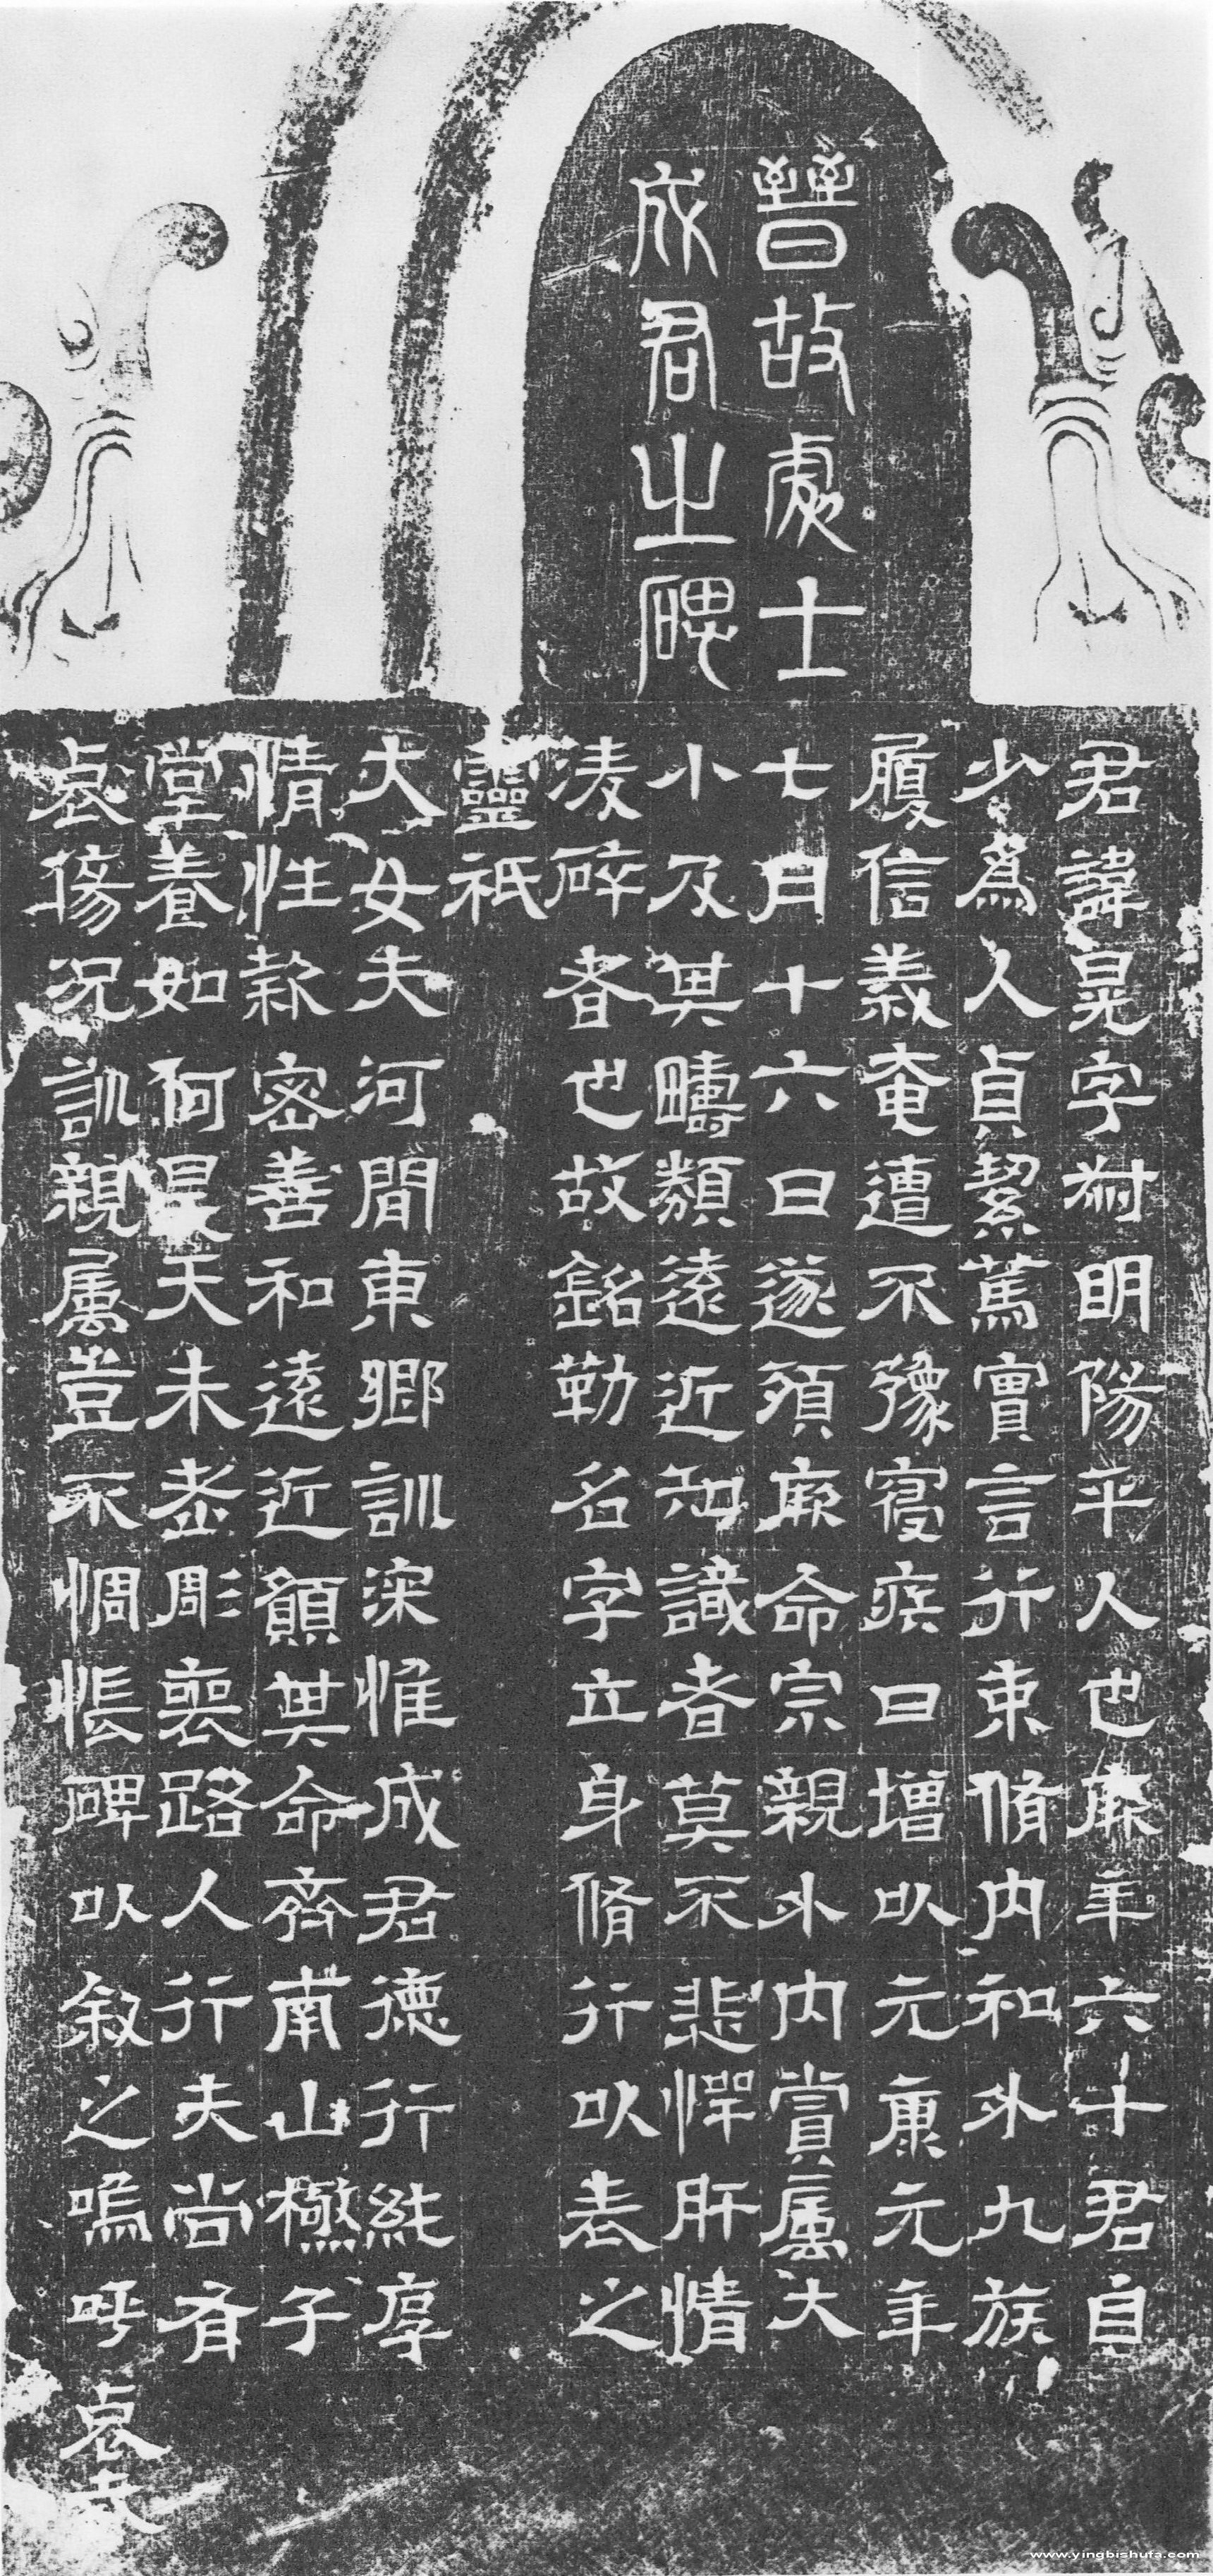 晉故處士
成君之碑
君諱晃字叔明陽平人也庚年六十君自
少為人貞絜篤實言行束脩內和外九族
履信義奄遭不豫寑疾日增以元康元年
七月十六日遂殞厥命宗親外內賞属大
小及其疇類遠近知識者莫不悲惲肝情
凌碎者也故銘勒名字立身脩行以表之
靈祇
大女夫河間東鄉訓深惟成君德行純厚
情性款密善和遠近願其命齊南山橪子
堂養如何昊天未老彫喪路人行夫尚有
哀傷況訓親属豈不惆悵碑以叙之嗚呼
哀哉
www.yingbishufa.com